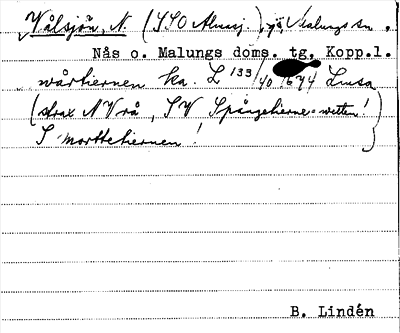 Vålsjön, N. (SSO Almsj.), sjö, Malungs sn.
Nås o. Malungs doms. tg, Kopp.l.
wårtiernen Ka. L 133/40 1674 Lusa
(strax NV rå, SV Spångetierne-wetten!
S morttetiernen!)
B. Lindén